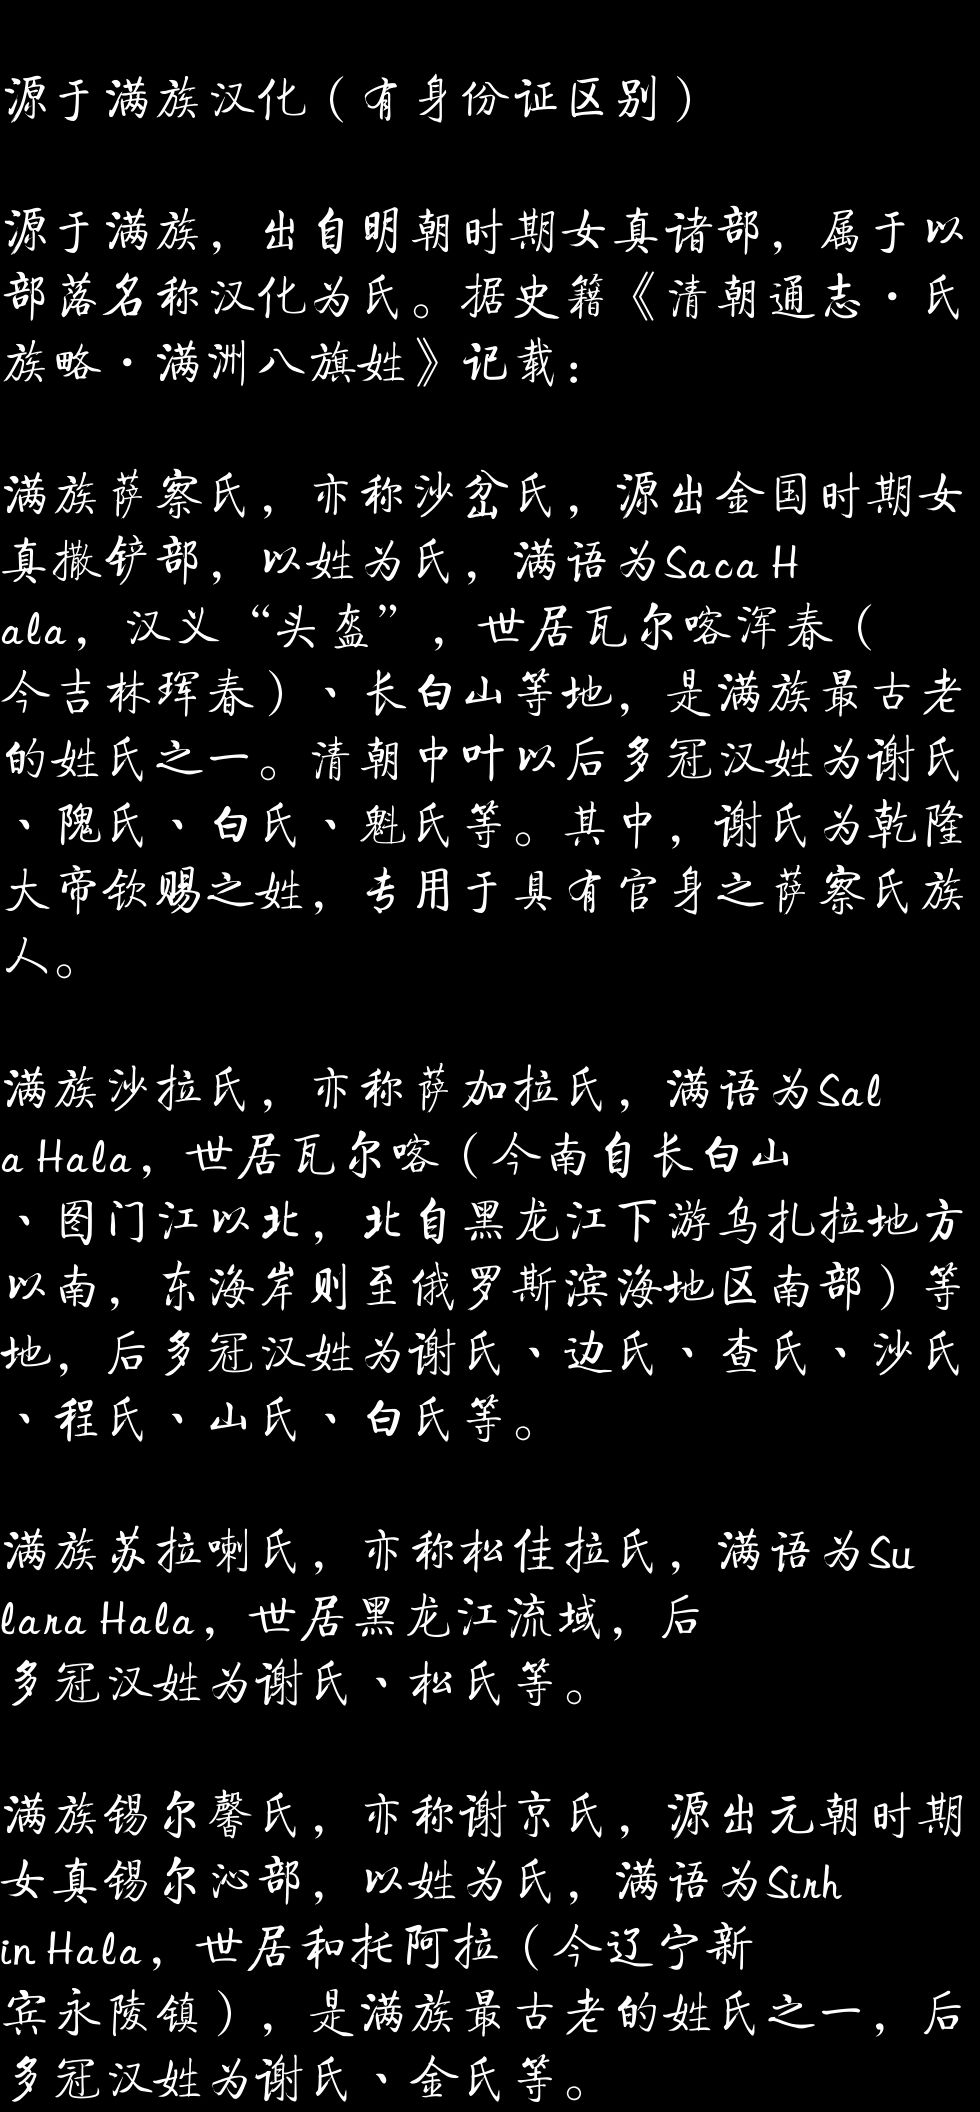 源于满族汉化（有身份证区别）
源于满族，出自明朝时期女真诸部，属于以
部落名称汉化为氏。据史籍《清朝通志·氏
族略·满洲八旗姓》记载：
满族萨察氏，亦称沙岔氏，源出金国时期女
真撒铲部，以姓为氏，满语为Saca H
ala，汉义“头盔”，世居瓦尔喀浑春（
今吉林珲春）、长白山等地，是满族最古老
的姓氏之一。清朝中叶以后多冠汉姓为谢氏
、隗氏、白氏、魁氏等。其中，谢氏为乾隆
大帝钦赐之姓，专用于具有官身之萨察氏族
人。
满族沙拉氏，亦称萨加拉氏，满语为Sal
a Hala，世居瓦尔喀（今南自长白山
、图门江以北，北自黑龙江下游乌扎拉地方
以南，东海岸则至俄罗斯滨海地区南部）等
地，后多冠汉姓为谢氏、边氏、查氏、沙氏
、程氏、山氏、白氏等。
满族苏拉喇氏，亦称松佳拉氏，满语为Su
lara Hala，世居黑龙江流域，后
多冠汉姓为谢氏、松氏等。
满族锡尔馨氏，亦称谢京氏，源出元朝时期
女真锡尔沁部，以姓为氏，满语为Sirh
in Hala，世居和托阿拉（今辽宁新
宾永陵镇），是满族最古老的姓氏之一，后
多冠汉姓为谢氏、金氏等。